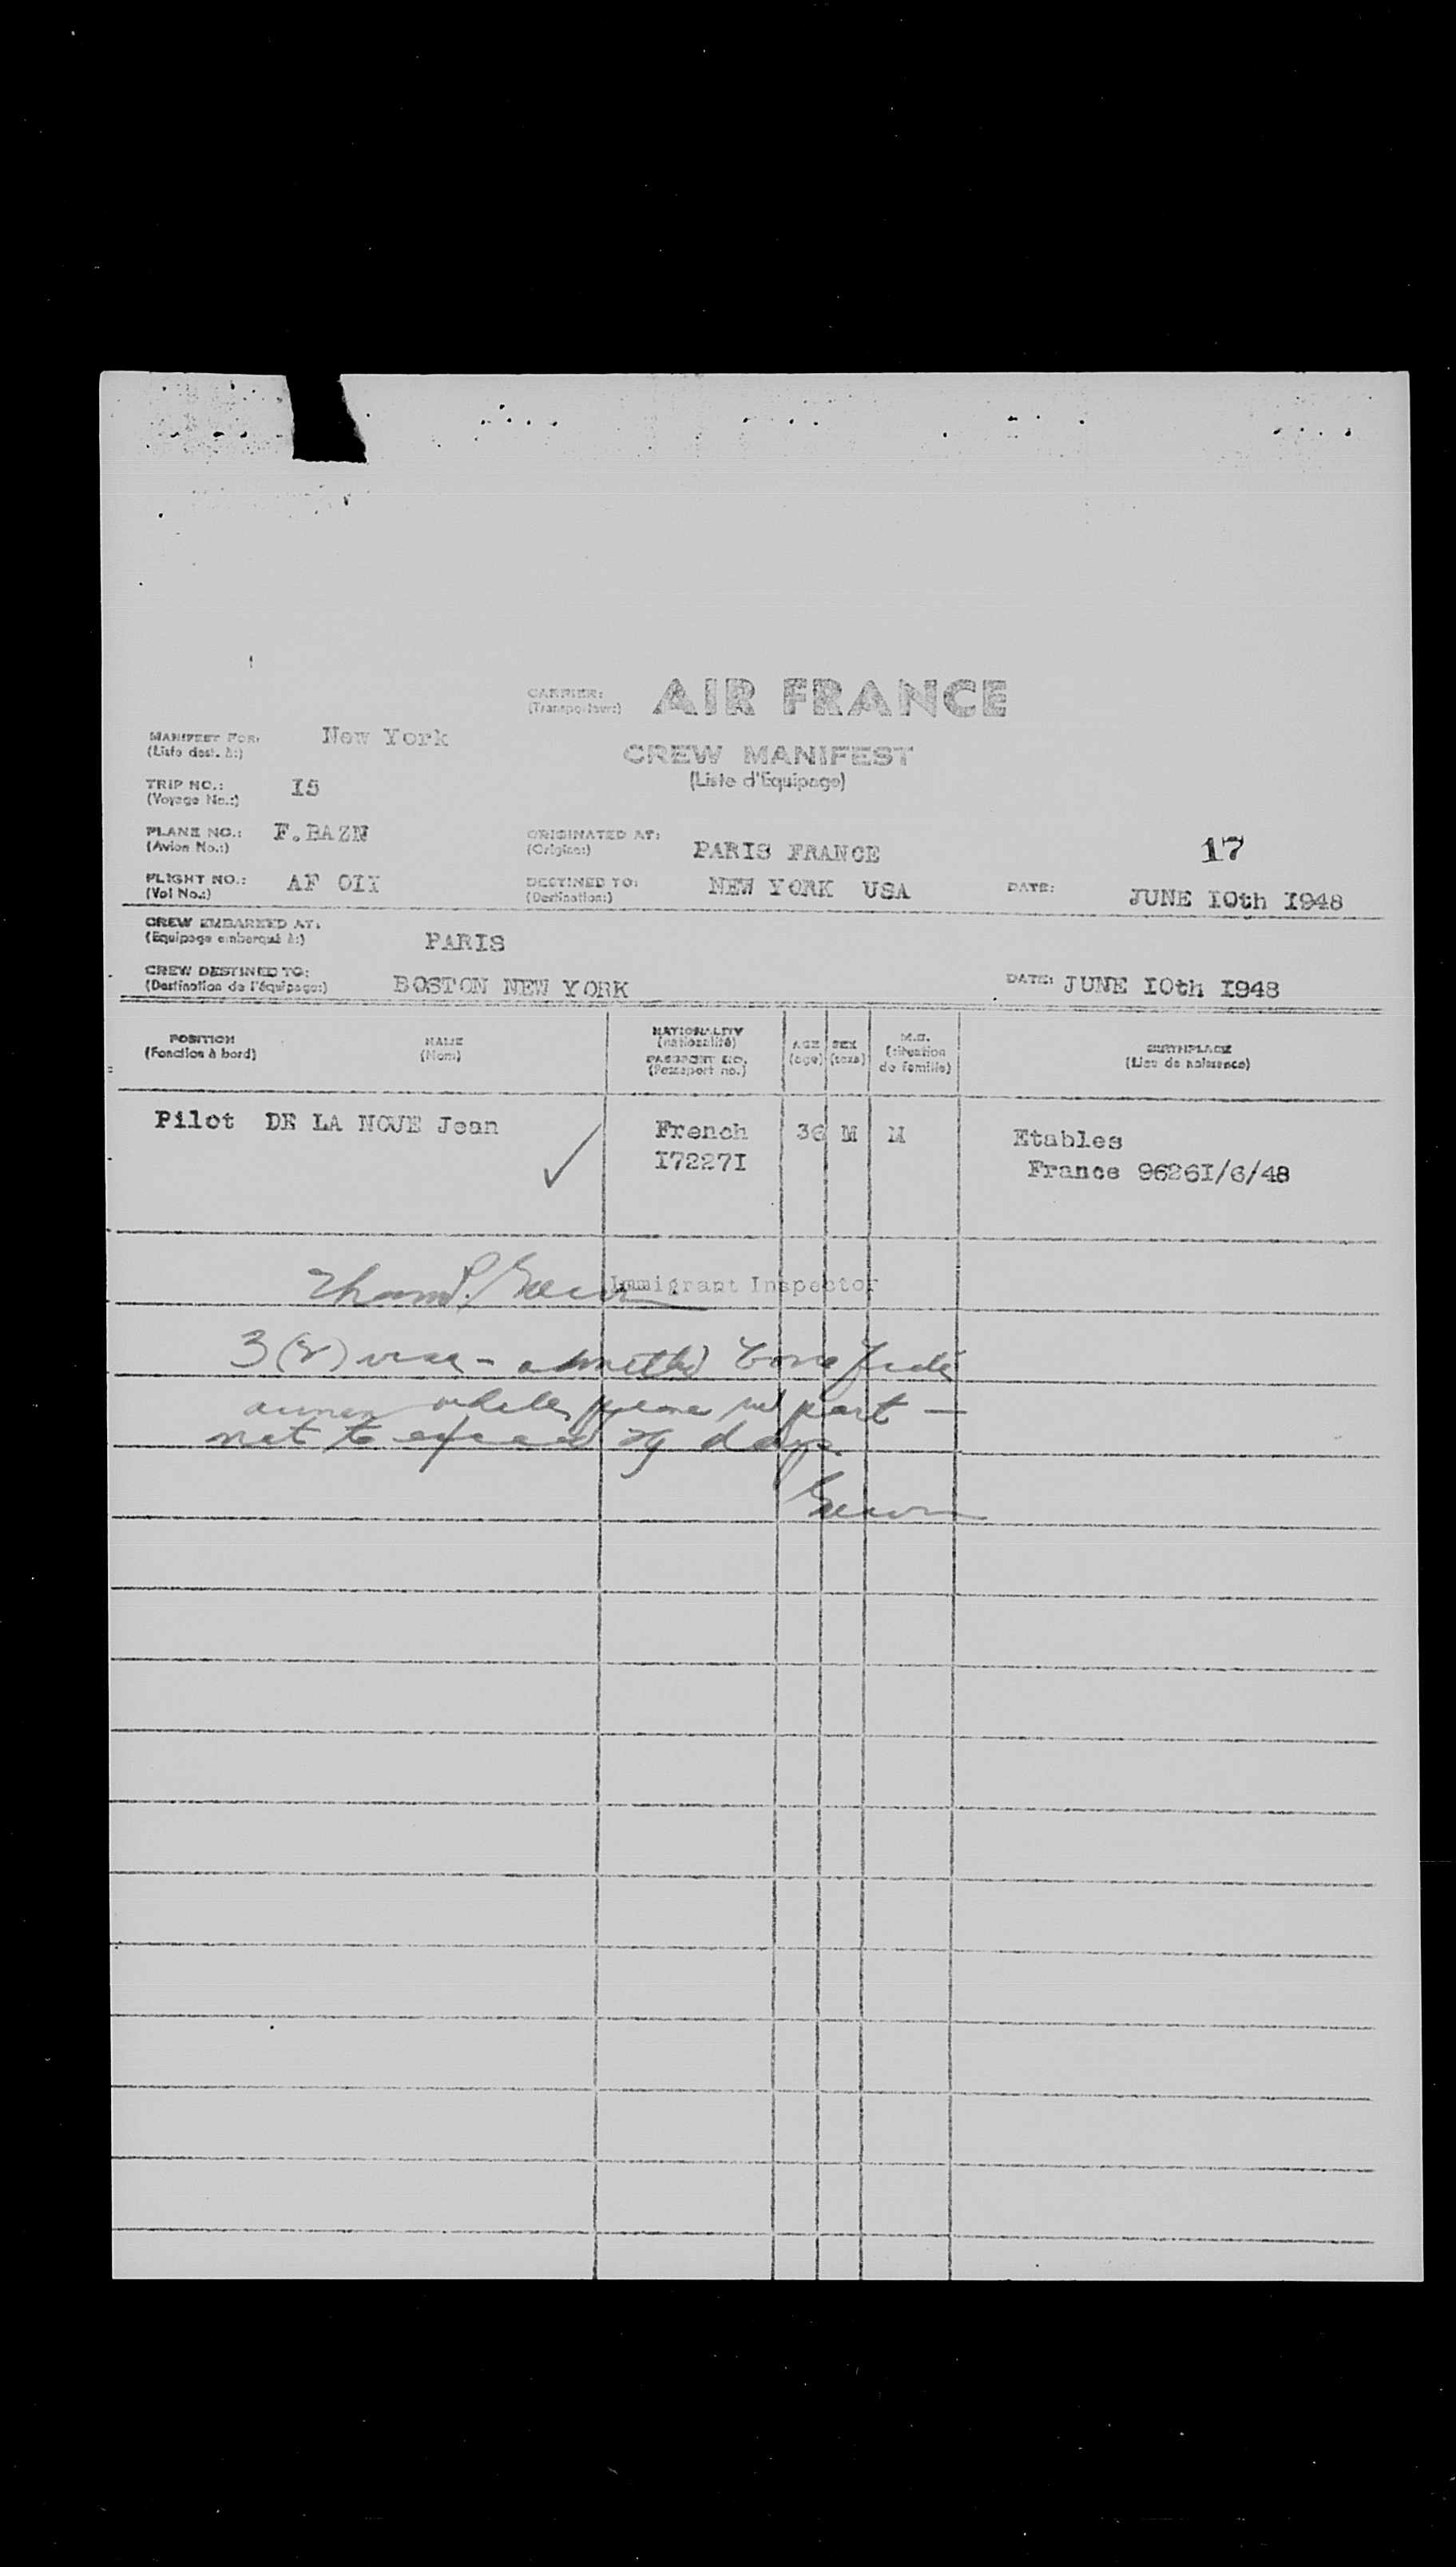 CARRIER: AIR FRANCE
(Transporteur:)
MANIFEST FOR: New York
(Liste dest. à:)
CREW MANIFEST
(Liste d'Equipage)
TRIP NO.: I5
(Voyage No.:)
PLANE NO.: F.BAZN
(Avion No.:)
ORIGINATED AT: PARIS FRANCE
(Origine:)
17
FLIGHT NO.: AF OII
(Vol No.:)
DESTINED TO: NEW YORK USA
(Destination:)
DATE: JUNE IOth I948
CREW EMBARKED AT: PARIS
(Equipage embarqué à:)
CREW DESTINED TO: BOSTON NEW YORK
(Destination de l'équipage:)
DATE: JUNE IOth I948
POSITION
(Fonction à bord)
NAME
(Nom)
NATIONALITY
(nationalité)
PASSPORT NO.
(Passeport no.)
AGE
(age)
SEX
(sexe)
M.S.
(situation
de famille)
BIRTHPLACE
(Lieu de naissance)
Pilot DE LA NOUE Jean French 36 M M Etables
I7227I France 9626I/6/48
Immigrant Inspector
3(2) visa - admitted bona fide
while plane in port -
not to exceed 29 days.